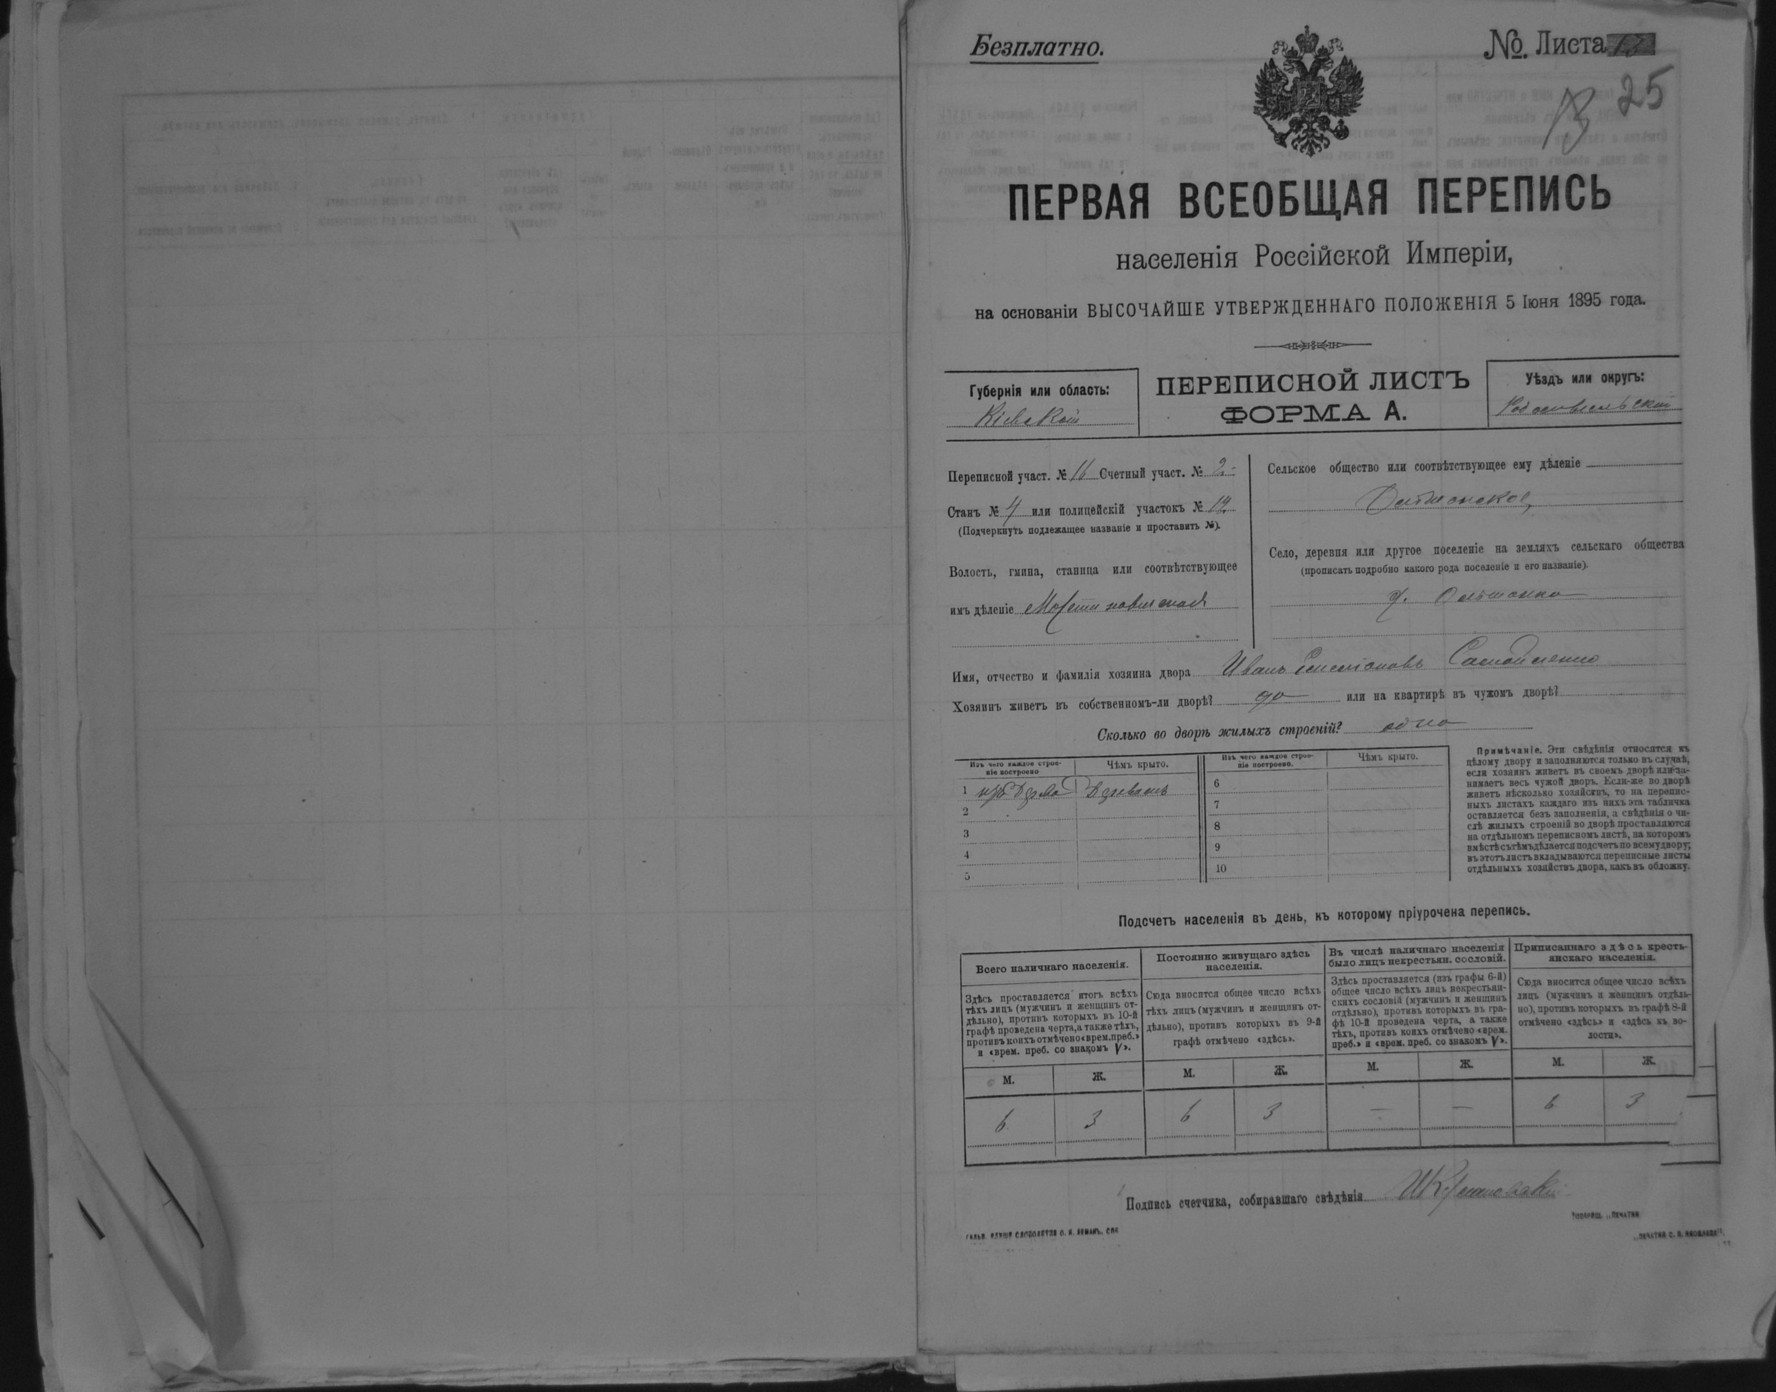 Безплатно.
№. Листа 13
13 25
ПЕРВАЯ ВСЕОБЩАЯ ПЕРЕПИСЬ
населенія Россійской Имперіи,
на основаніи ВЫСОЧАЙШЕ УТВЕРЖДЕННАГО ПОЛОЖЕНІЯ 5 Іюня 1895 года.
Губернія или область:
Кіевской
ПЕРЕПИСНОЙ ЛИСТЪ
ФОРМА А.
Уѣздъ или округъ:
Переписной участ. № 16 Счетный участ. № 2
Станъ № 4 или полицейскій участокъ № 14
(Подчеркнуть подлежащее названіе и проставить №).
Волость, гмина, станица или соотвѣтствующее
имъ дѣленіе
Сельское общество или соотвѣтствующее ему дѣленіе
Ольшанское,
Село, деревня или другое поселеніе на земляхъ сельскаго общества
(прописать подробно какого рода поселеніе и его названіе).
Ольшанка
Имя, отчество и фамилія хозяина двора Иванъ Самойленко
Хозяинъ живетъ въ собственномъ-ли дворѣ? да или на квартирѣ въ чужомъ дворѣ?
Сколько во дворѣ жилыхъ строеній? одно
Изъ чего каждое строе-
ніе построено
Чѣмъ крыто.
Изъ чего каждое строе-
ніе построено.
Чѣмъ крыто.
1 изъ Дрова
6
2
7
3
8
4
9
5
10
Примѣчаніе. Эти свѣдѣнія относятся къ
цѣлому двору и заполняются только въ случаѣ,
если хозяинъ живетъ въ своемъ дворѣ или за-
нимаетъ весь чужой дворъ. Если-же во дворѣ
живетъ нѣсколько хозяйствъ, то на перепис-
ныхъ листахъ каждаго изъ нихъ эта табличка
оставляется безъ заполненія, а свѣдѣнія о чи-
слѣ жилыхъ строеній во дворѣ проставляются
на отдѣльномъ переписномъ листѣ, на которомъ
вмѣстѣ съ тѣмъ дѣлается подсчетъ по всему двору;
въ этотъ листъ вкладываются переписные листы
отдѣльныхъ хозяйствъ двора, какъ въ обложку.
Подсчетъ населенія въ день, къ которому пріурочена перепись.
Всего наличнаго населенія.
Здѣсь проставляется итогъ всѣхъ
тѣхъ лицъ (мужчинъ и женщинъ от-
дѣльно), противъ которыхъ въ 10-й
графѣ проведена черта, а также тѣхъ,
противъ коихъ отмѣчено «врем. преб.»
и «врем. преб. со знакомъ V».
Постоянно живущаго здѣсь
населенія.
Сюда вносится общее число всѣхъ
тѣхъ лицъ (мужчинъ и женщинъ от-
дѣльно), противъ которыхъ въ 9-й
графѣ отмѣчено «здѣсь».
Въ числѣ наличнаго населенія
было лицъ некрестьян. сословій.
Здѣсь проставляется (изъ графы 6-й)
общее число всѣхъ лицъ некрестьян-
скихъ сословій (мужчинъ и женщинъ
отдѣльно), противъ которыхъ въ гра-
фѣ 10-й проведена черта, а также
тѣхъ, противъ коихъ отмѣчено «врем.
преб.» и «врем. преб. со знакомъ V».
Приписаннаго здѣсь кресть-
янскаго населенія.
Сюда вносится общее число всѣхъ
лицъ (мужчинъ и женщинъ отдѣль-
но), противъ которыхъ въ графѣ 8-й
отмѣчено «здѣсь» и «здѣсь къ во-
лости».
М. Ж. М. Ж. М. Ж. М. Ж.
6 3 6 3 — — 6 3
Подпись счетчика, собиравшаго свѣдѣнія